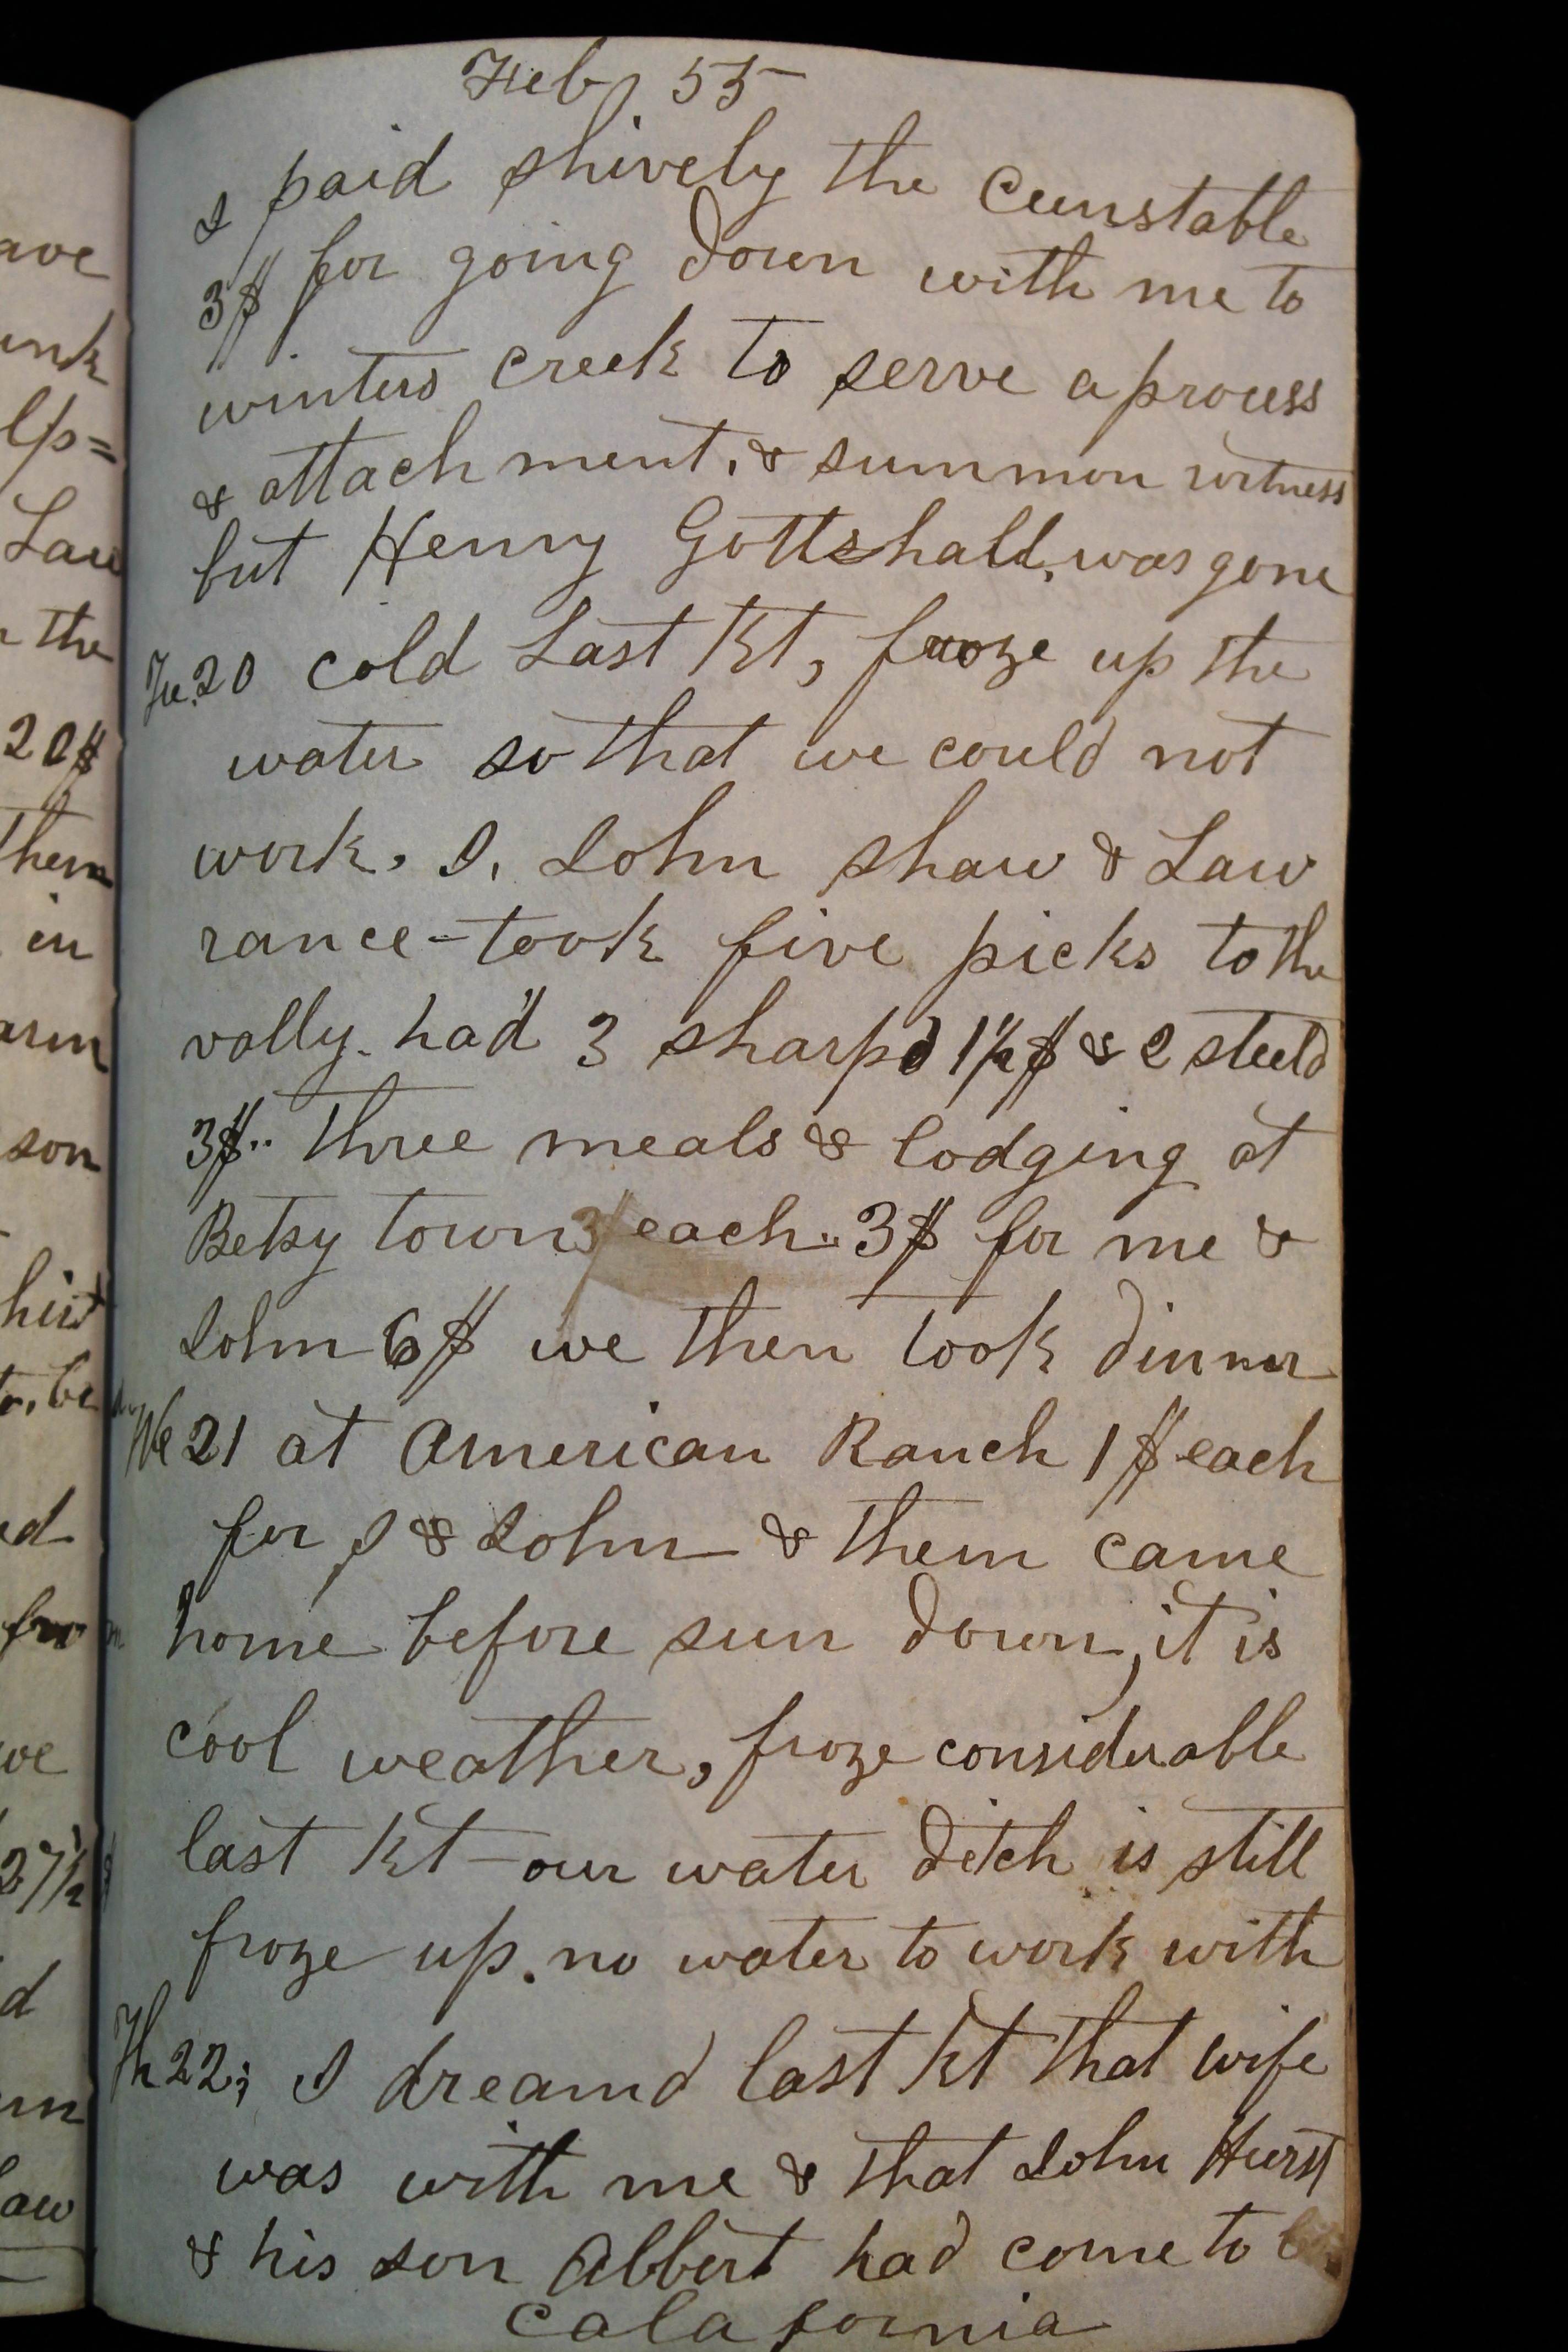 Feb 55
I paid shively the Cunstable
3$ for going down with me to
winters creek to serve a process
& attach ment, & summon witness
but Henry Gottshall, was gone
Tu. 20 cold Last Nt, froze up the
water so that we could not
work. I, John shaw & Law
rance - took five picks to the
vally. had 3 sharpd 1½$ & 2 steeld
3$.. three meals & lodging at
Betsy town 3$ each.. 3$ for me &
John 6$ we then took dinner
We 21 at American Ranch 1$ each
for I & John & them came
home before sun down, it is
cool weather, froze considerable
last Nt - our water ditch is still
froze up. no water to work with
Th 22; I dreamd last Nt that wife
was with me & that John Hurst
& his son Albert had come to
Cala fornia
ave
ink
lp=
Law
the
20$
them
in
arm
son
hirt
be
ed
from
we
27½
d
um
Law